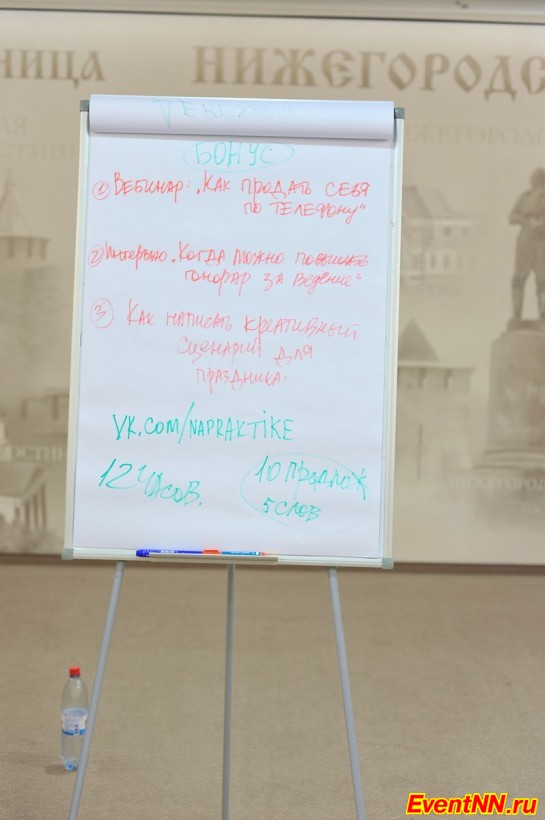 НИЦА НИЖЕГОРОДС
НИЖЕГОРОДС
БОНУС
① Вебинар: „Как продать себя
по телефону“
② Интервью „Когда можно повышать
гонорар за ведение“
③ Как написать креативный
сценарий для
праздника.
VK.COM/NAPRAKTIKE
12 часов.
10 предлож
5 слов
EventNN.ru